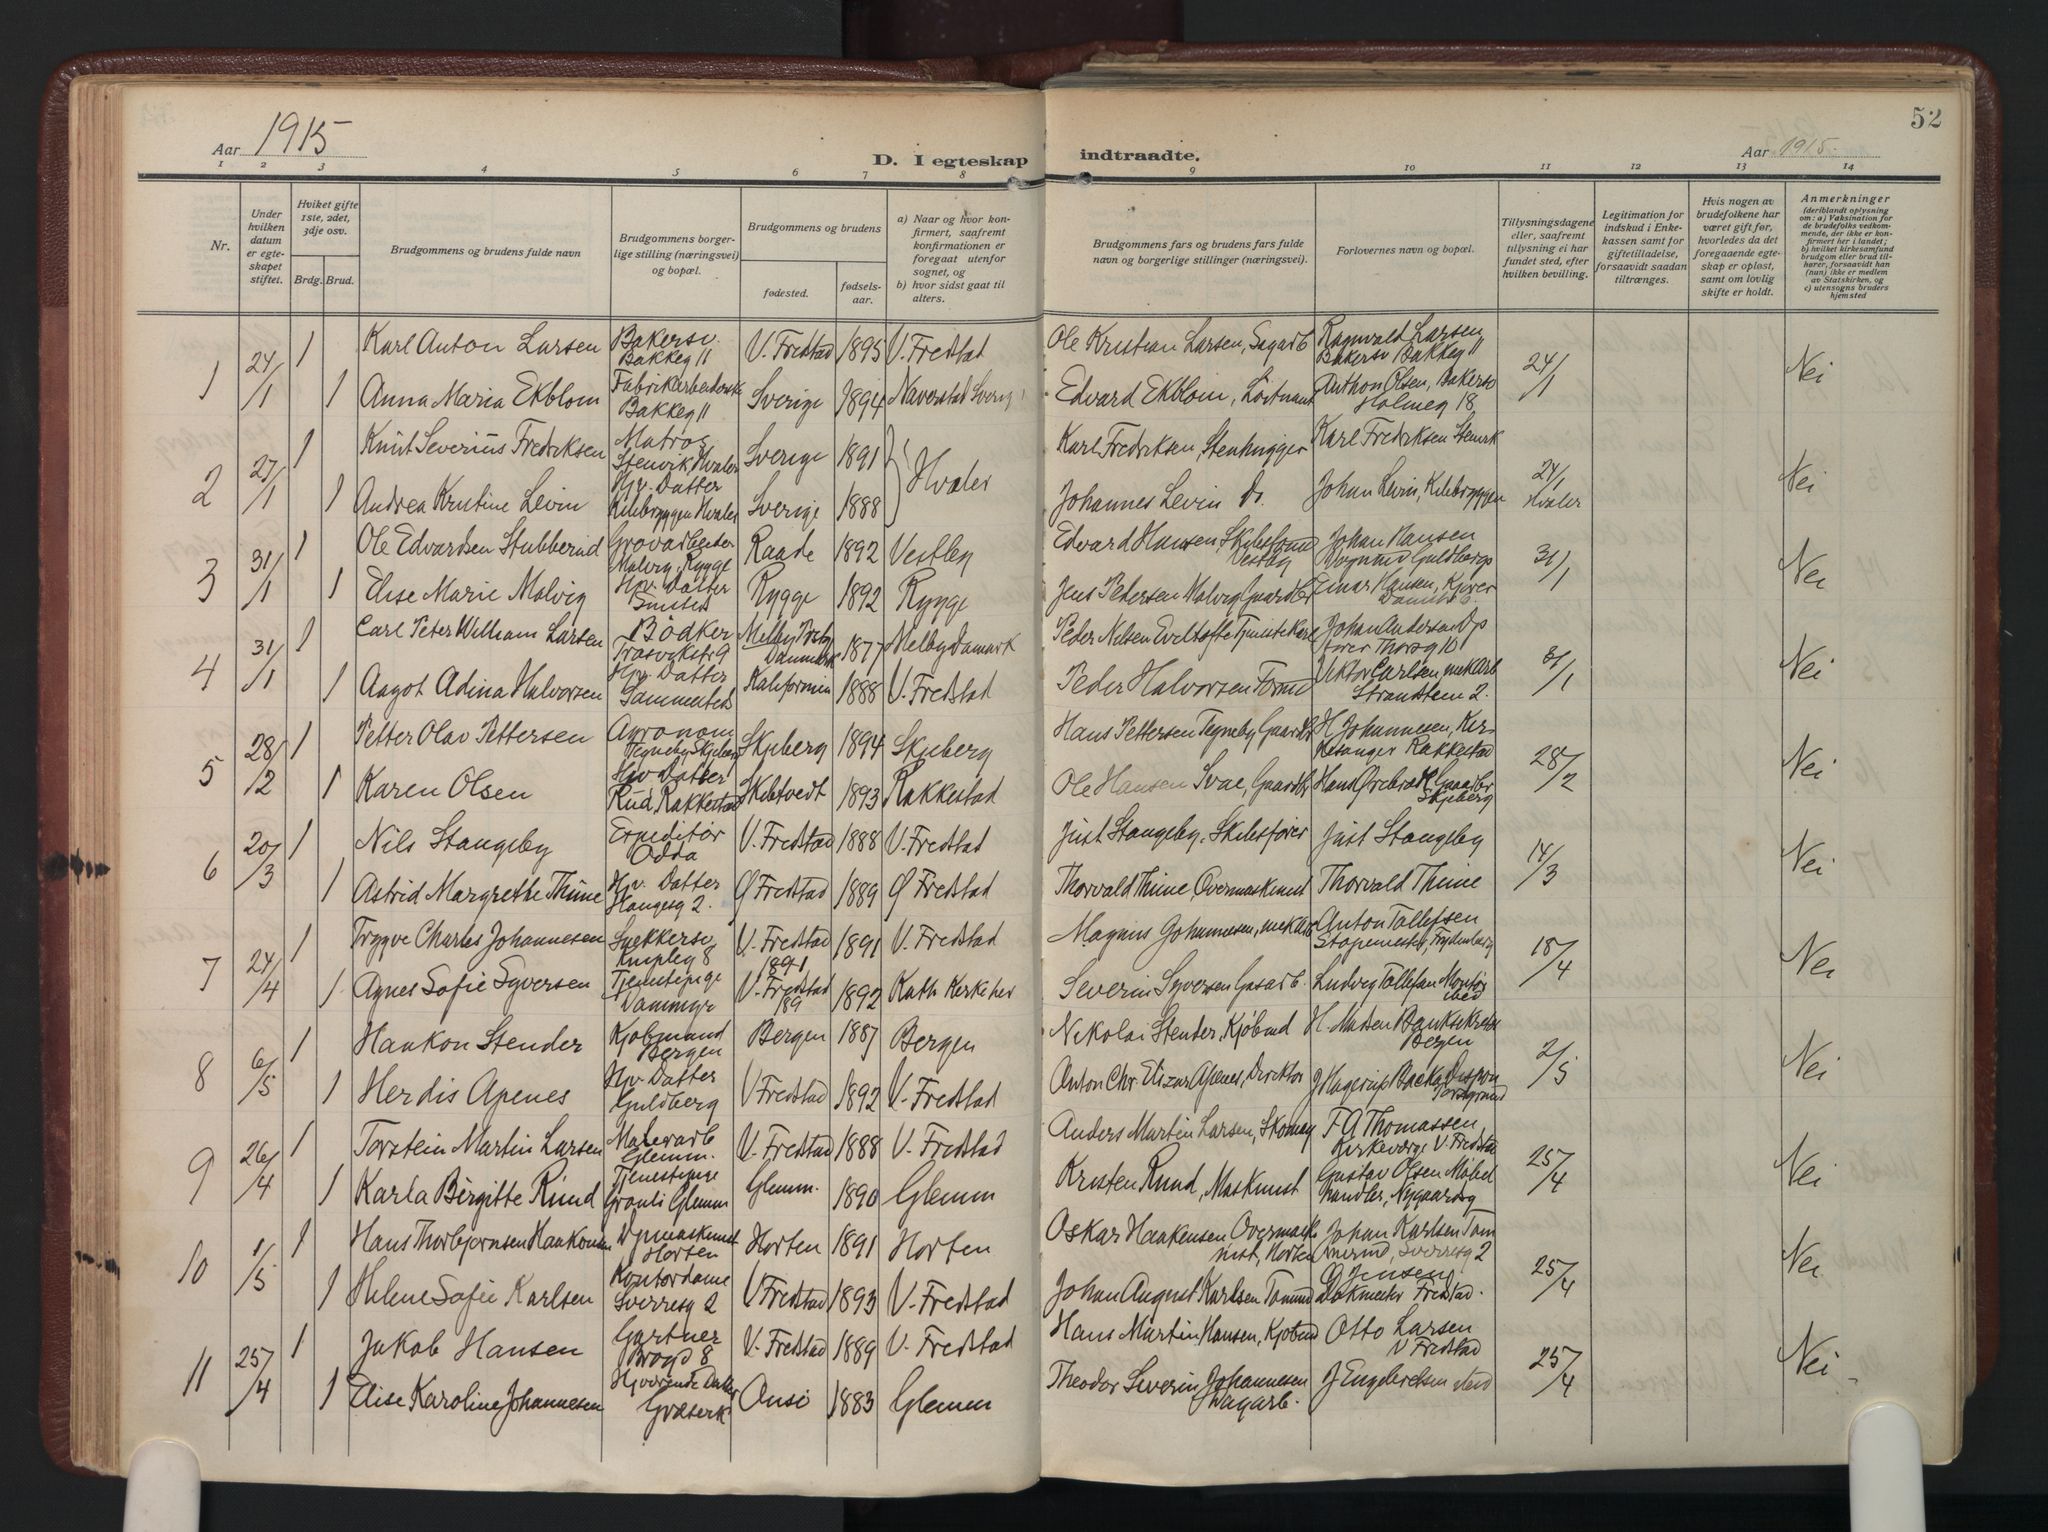 52
Aar 1915
D. I egteskap indtraadte.
Aar 1915
1 2 3 4 5 6 7 8 9 10 11 12 13 14
Nr.
Under hvilken datum er egteskapet stiftet.
Hvilket gifte 1ste, 2det, 3dje osv.
Brdg. Brud.
Brudgommens og brudens fulde navn
Brudgommens borgerlige stilling (næringsvei) og bopæl.
Brudgommens og brudens
fødested. fødselsaar.
a) Naar og hvor konfirmert, saafremt konfirmationen er foregaat utenfor sognet, og
b) hvor sidst gaat til alters.
Brudgommens fars og brudens fars fulde navn og borgerlige stillinger (næringsvei).
Forlovernes navn og bopæl.
Tillysningsdagene eller, saafremt tillysning ei har fundet sted, efter hvilken bevilling.
Legitimation for indskud i Enkekassen samt for giftetilladelse, forsaavidt saadan tiltrænges.
Hvis nogen av brudefolkene har været gift før, hvorledes da det foregaaende egteskap er opløst, samt om lovlig skifte er holdt.
Anmerkninger
(deriblandt oplysning om: a) Vaksination for de brudefolks vedkommende, der ikke er konfirmert her i landet; b) hvilket kirkesamfund brudgom eller brud tilhører, forsaavidt han (hun) ikke er medlem av Statskirken, og c) utensogns bruders hjemsted
1 24/1 1 Karl Anton Larsen Bakersv. Bakkeg 11 V. Fredstad 1895 V. Fredstad Ole Kristian Larsen, Sagarb Ragnvald Larsen Bakersv Bakkeg 11 24/1 Nei
1 Anna Maria Ekblom Fabrikarbeiderske Bakkeg 11 Sverige 1894 Naverstad Sverig Edvard Ekblom, Løitnant Anthon Olsen, Bakersv Holmeg 18
2 27/1 1 Knut Severius Fredriksen Matros Stenvik, Hvaler Sverige 1891 Hvaler Karl Fredriksen, Stenhugger Karl Fredriksen 24/1 Hvaler Nei
1 Andrea Kristine Levin Hjv. Datter Hvaler Sverige 1888 Johannes Levin do. Johan Levin,
3 31/1 1 Ole Edvardsen Stubberud Grovarbeider Malvig, Rygge Raade 1892 Vestby Edvard Hansen, Johan Hansen Vognmd Guldbergs 31/1 Nei
1 Elise Marie Malvig Hjv. Datter Smsteds Rygge 1892 Rygge Jens Pedersen Malvig Gaardbr Einar Hansen, Kjører
4 31/1 1 Carl Peter William Larsen Bødker Trosvikstr 9 Danmark 1877 Melby Damark Peder Nilsen Johan Andersen Thorsg 10 31/1 Nei
1 Aagot Adina Halvorsen Hjv. Datter Sammesteds Kalifornien 1888 V. Fredstad Peder Halvorsen Viktor Carlsen, mek Arb Strandlien 2.
5 28/2 1 Petter Olav Pettersen Agronom Tegneby, Skjeberg Skjeberg 1894 Skjeberg Hans Pettersen Tegneby, Gaardbr H Johannesen, Kirkesanger Rakkestad 28/2 Nei
1 Karen Olsen Hjv Datter Rud, Rakkestad Skibtvedt 1893 Rakkestad Ole Hansen Svae, Gaardbr Hans Gaardbr Skjeberg
6 20/3 1 Nils Stangeby Expeditør Odda V. Fredstad 1888 V. Fredstad Just Stangeby, Skibsfører Just Stangeby 14/3 Nei
1 Astrid Margrethe Thime Hjv. Datter Haugesg 2. Ø Fredstad 1889 Ø Fredstad Thorvald Thime, Overmaskinist Thorvald Thime
7 24/4 1 Trygve Charles Johannesen Snekkersv. Knipleg 8 V. Fredstad 1891 1891 V. Fredstad Magnus Johannesen, mek Arb Anton Tollefsen 18/4 Nei
1 Agnes Sofie Syversen Tjenestepige Dammyr V. Fredstad 189 1892 Kath Kirke her Severin Syversen Ludvig Tollefsen Montør
8 6/5 1 Haakon Stender Kjøbmand Bergen Bergen 1887 Bergen Nikolai Stender, Kjøbmd H. Madsen Bergen 2/5 Nei
1 Herdis Apenes Hjv. Datter Guldberg V Fredstad 1892 V. Fredstad Anton Chr. Elizar Apenes, Direktør J Hagerup Backe,
9 26/4 1 Torstein Martin Larsen Malerarb Glemm. V. Fredstad 1888 V. Fredstad Anders Martin Larsen, Skomag F A Thomassen Kirkeværge V. Fredstad 25/4 Nei
1 Karla Birgitte Rund Tjenestepige Glemm Glemm. 1890 Glemm Kristen Rund, Maskinist Gustav Olsen Møbelhandler, Nygaardsg
10 1/5 1 Hans Thorbjørnsen Haakonsen Horten Horten 1891 Horten Oskar Haakensen Overmaskinist, Horten Johan Karlsen Sverresg 2 25/4 Nei
1 Helene Sofie Karlsen Kontordame Sverresg 2 V Fredstad 1893 V. Fredstad Johan August Karlsen Jensen Dokmester Fredstad.
11 25/4 1 Jakob Hansen Gartner Brogd 8 V. Fredstad 1889 V. Fredstad Hans Martin Hansen, Kjøbmd Otto Larsen V Fredstad 25/4 Nei
1 Elise Karoline Johannesen Hjværende Datter Onsø 1883 Glemm Theodor Severin Johannesen Sagarb. J Engebretsen sted